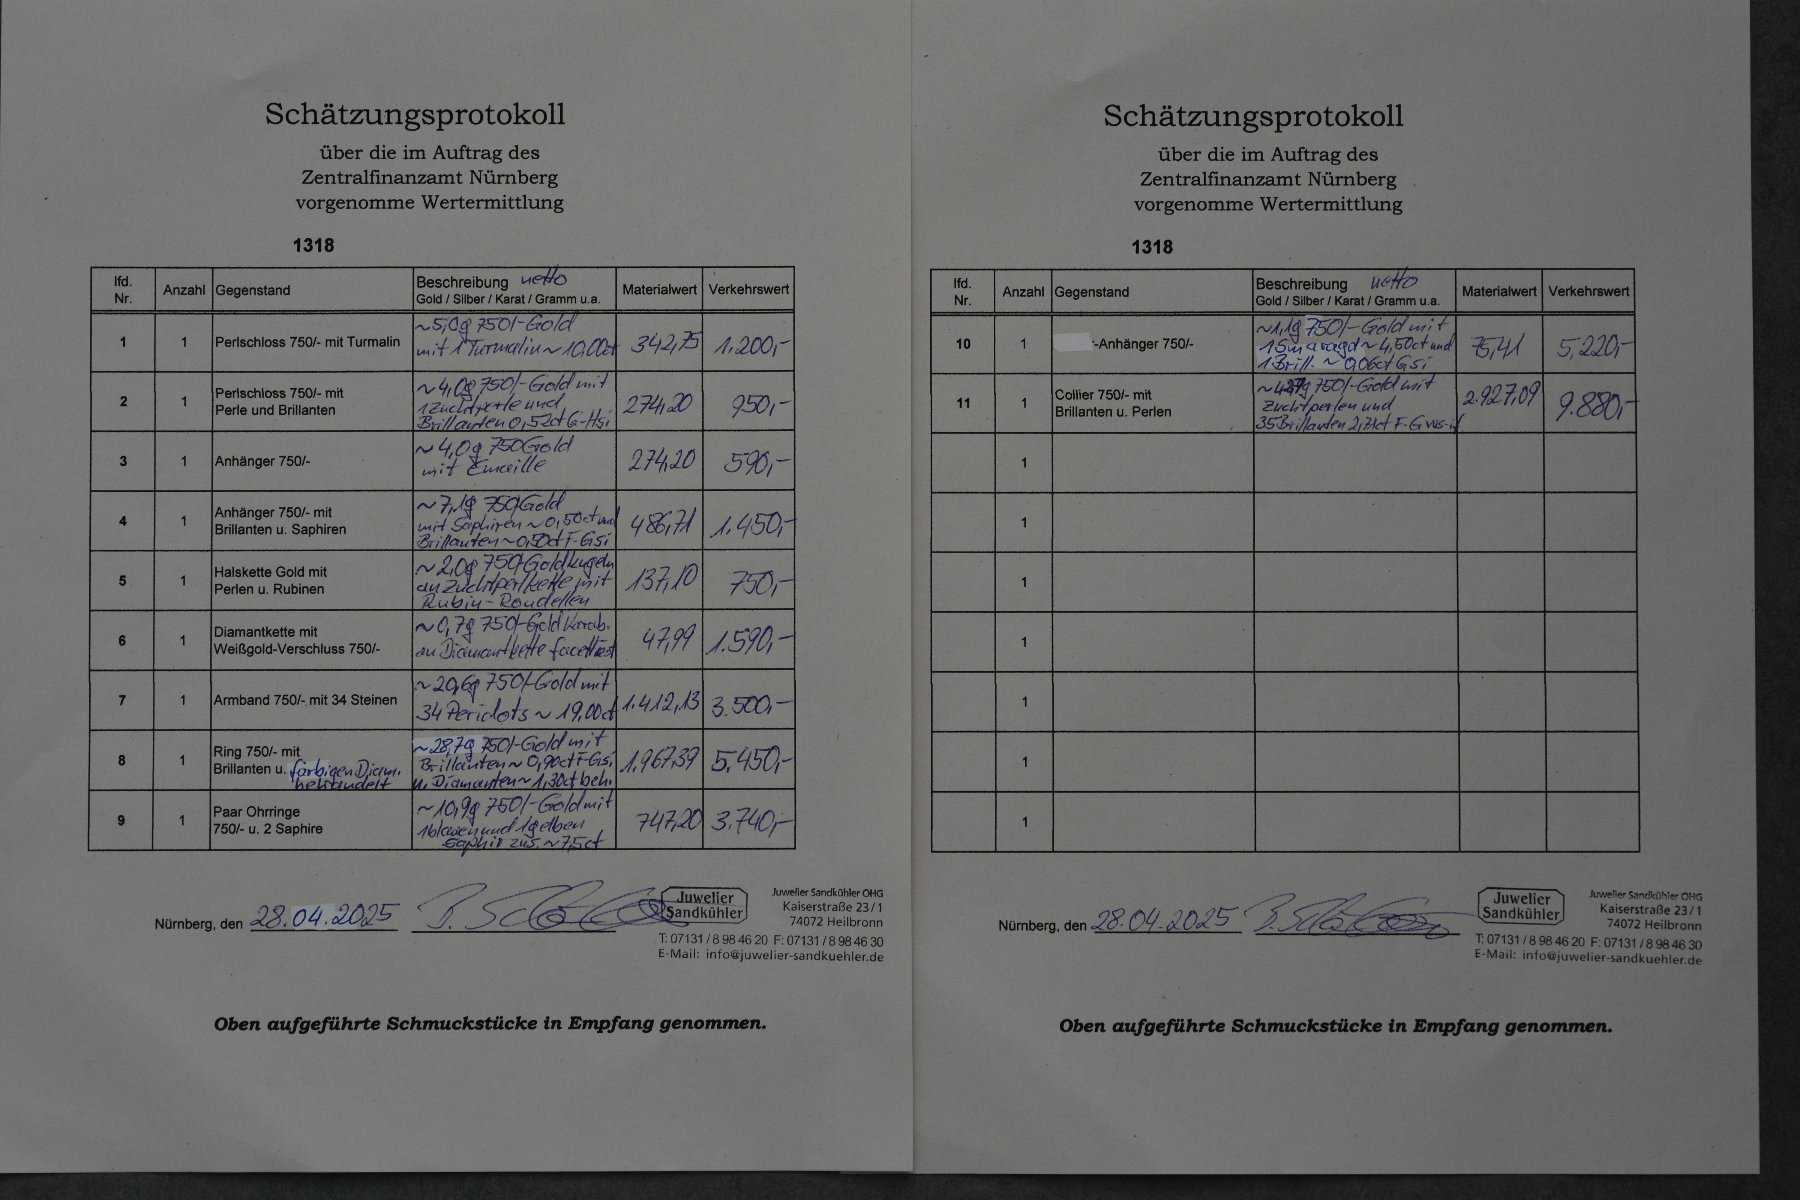 Schätzungsprotokoll
über die im Auftrag des
Zentralfinanzamt Nürnberg
vorgenomme Wertermittlung
1318
lfd. Nr. Anzahl Gegenstand Beschreibung netto Gold / Silber / Karat / Gramm u.a. Materialwert Verkehrswert
1 1 Perlschloss 750/- mit Turmalin ~5,0g 750/-Gold
mit 1 Turmalin ~ 10,00ct 342,75 1.200,-
2 1 Perlschloss 750/- mit
Perle und Brillanten ~4,0g 750/-Gold mit
1 Zuchtperle und
Brillanten 0,52ct G-Hsi 274,20 950,-
3 1 Anhänger 750/- ~4,0g 750Gold
mit Emaille 274,20 590,-
4 1 Anhänger 750/- mit
Brillanten u. Saphiren ~7,1g 750Gold
mit Saphiren ~0,50ct und
Brillanten ~0,50ct F-Gsi 486,71 1.450,-
5 1 Halskette Gold mit
Perlen u. Rubinen ~2,0g 750/-Goldkugeln
an Zuchtperlkette mit
Rubin-Rondellen 137,10 750,-
6 1 Diamantkette mit
Weißgold-Verschluss 750/- ~0,7g 750/-Gold Karab.
an Diamantkette facettiert 47,99 1.590,-
7 1 Armband 750/- mit 34 Steinen ~20,6g 750/-Gold mit
34 Peridots ~ 19,00ct 1.412,13 3.500,-
8 1 Ring 750/- mit
Brillanten u. farbigen Diam.
behandelt ~28,7g 750/-Gold mit
Brillanten ~ 0,90ct F-Gsi
u. Diamanten ~ 1,30ct beh. 1.967,39 5.450,-
9 1 Paar Ohrringe
750/- u. 2 Saphire ~10,9g 750/-Gold mit
1 blauen und 1 gelben
Saphir zus. ~7,5ct 747,20 3.740,-
Nürnberg, den 28.04.2025
Juwelier
Sandkühler
Juwelier Sandkühler OHG
Kaiserstraße 23/1
74072 Heilbronn
T: 07131 / 8 98 46 20 F: 07131 / 8 98 46 30
E-Mail: info@juwelier-sandkuehler.de
Oben aufgeführte Schmuckstücke in Empfang genommen.
Schätzungsprotokoll
über die im Auftrag des
Zentralfinanzamt Nürnberg
vorgenomme Wertermittlung
1318
lfd. Nr. Anzahl Gegenstand Beschreibung netto Gold / Silber / Karat / Gramm u.a. Materialwert Verkehrswert
10 1 -Anhänger 750/- ~1,1g 750/-Gold mit
1 Smaragd ~ 4,50ct und
1 Brill. ~ 0,06ct Gsi 75,41 5.220,-
11 1 Collier 750/- mit
Brillanten u. Perlen 750/-Gold mit
Zuchtperlen und
35 Brillanten 2,71ct F-G vvs-if 2.927,09 9.880,-
1
1
1
1
1
1
1
Nürnberg, den 28.04.2025
Juwelier
Sandkühler
Juwelier Sandkühler OHG
Kaiserstraße 23/1
74072 Heilbronn
T: 07131 / 8 98 46 20 F: 07131 / 8 98 46 30
E-Mail: info@juwelier-sandkuehler.de
Oben aufgeführte Schmuckstücke in Empfang genommen.